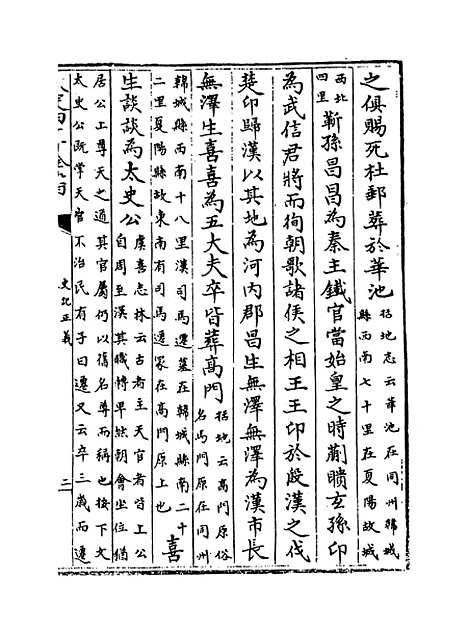 之俱賜死杜郵葬於華池括地志云華池在同州韓城
縣西南七十里在夏陽故城
西北
四里
靳孫昌昌為秦主鐵官當始皇之時蒯聵玄孫卬
為武信君將而徇朝歌諸侯之相王王卬於殷漢之伐
楚卬歸漢以其地為河内郡昌生無澤無澤為漢市長
無澤生喜喜為五大夫卒皆葬高門括地云高門原俗
名馬門原在同州
韓城縣西南十八里漢司馬遷墓在韓城縣南二十
二里夏陽縣故東南有司馬遷冢在高門原上也
喜
生談談為太史公虞喜志林云古者主天官者皆上公
自周至漢其職轉卑然朝會坐位猶
居公上尊天之道其官屬仍以舊名尊而稱也按下文
太史公既掌天官不治民有子曰遷又云卒三歲而遷
史記正義
二